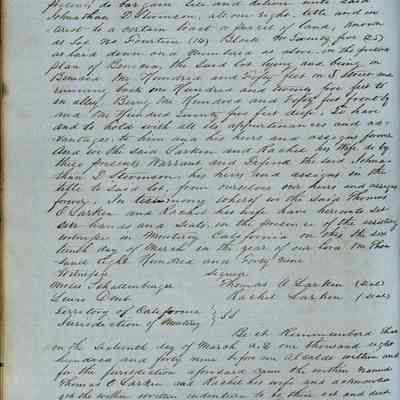 presents do bargain sell and deliver unto said
Johnathan D Stevenson, all our right, title and in
terest to a certain tract or parcel of land, known
as Lot No Fourteen (14) Block No Twenty five (25)
as laid down and numbered as above, on the
plan of Benicia, the said Lot lying and being in
Benicia One Hundred and Fifty feet on S Street and
running back One Hundred and Twenty five feet to
an alley Being One Hundred and Fifty feet front by
and One Hundred Twenty five feet deep. To have
and to hold with all its appurtenances and ad-
vantages to him and his heirs and assigns forever
And we the said Larkin and Rachel his Wife do by
these presents Warrant and Defend the said Johna-
than D Stevenson, his heirs and assigns in the
title to said Lot, from ourselves our heirs and assigns
forever. In testimony whereof we the said Thomas
O Larkin and Rachel his wife have hereunto set
our hands and seals, in the presence of the
witnesses in Monterey California on this the six
teenth day of March in the year of our Lord One Thou
sand Eight Hundred and Forty nine
Witnesses Signed
Moses Schallenberger Thomas O Larkin (seal)
Lewis Dent Rachel Larkin (seal)
Territory of California
Jurisdiction of Monterey } SS
Be it Remembered that
on the Sixteenth day of March A.D. one thousand eight
hundred and forty nine before me Alcalde within and
for the jurisdiction aforesaid came the within named
Thomas O Larkin and Rachel his wife and acknowled
ged the within written indenture to be their act and deed